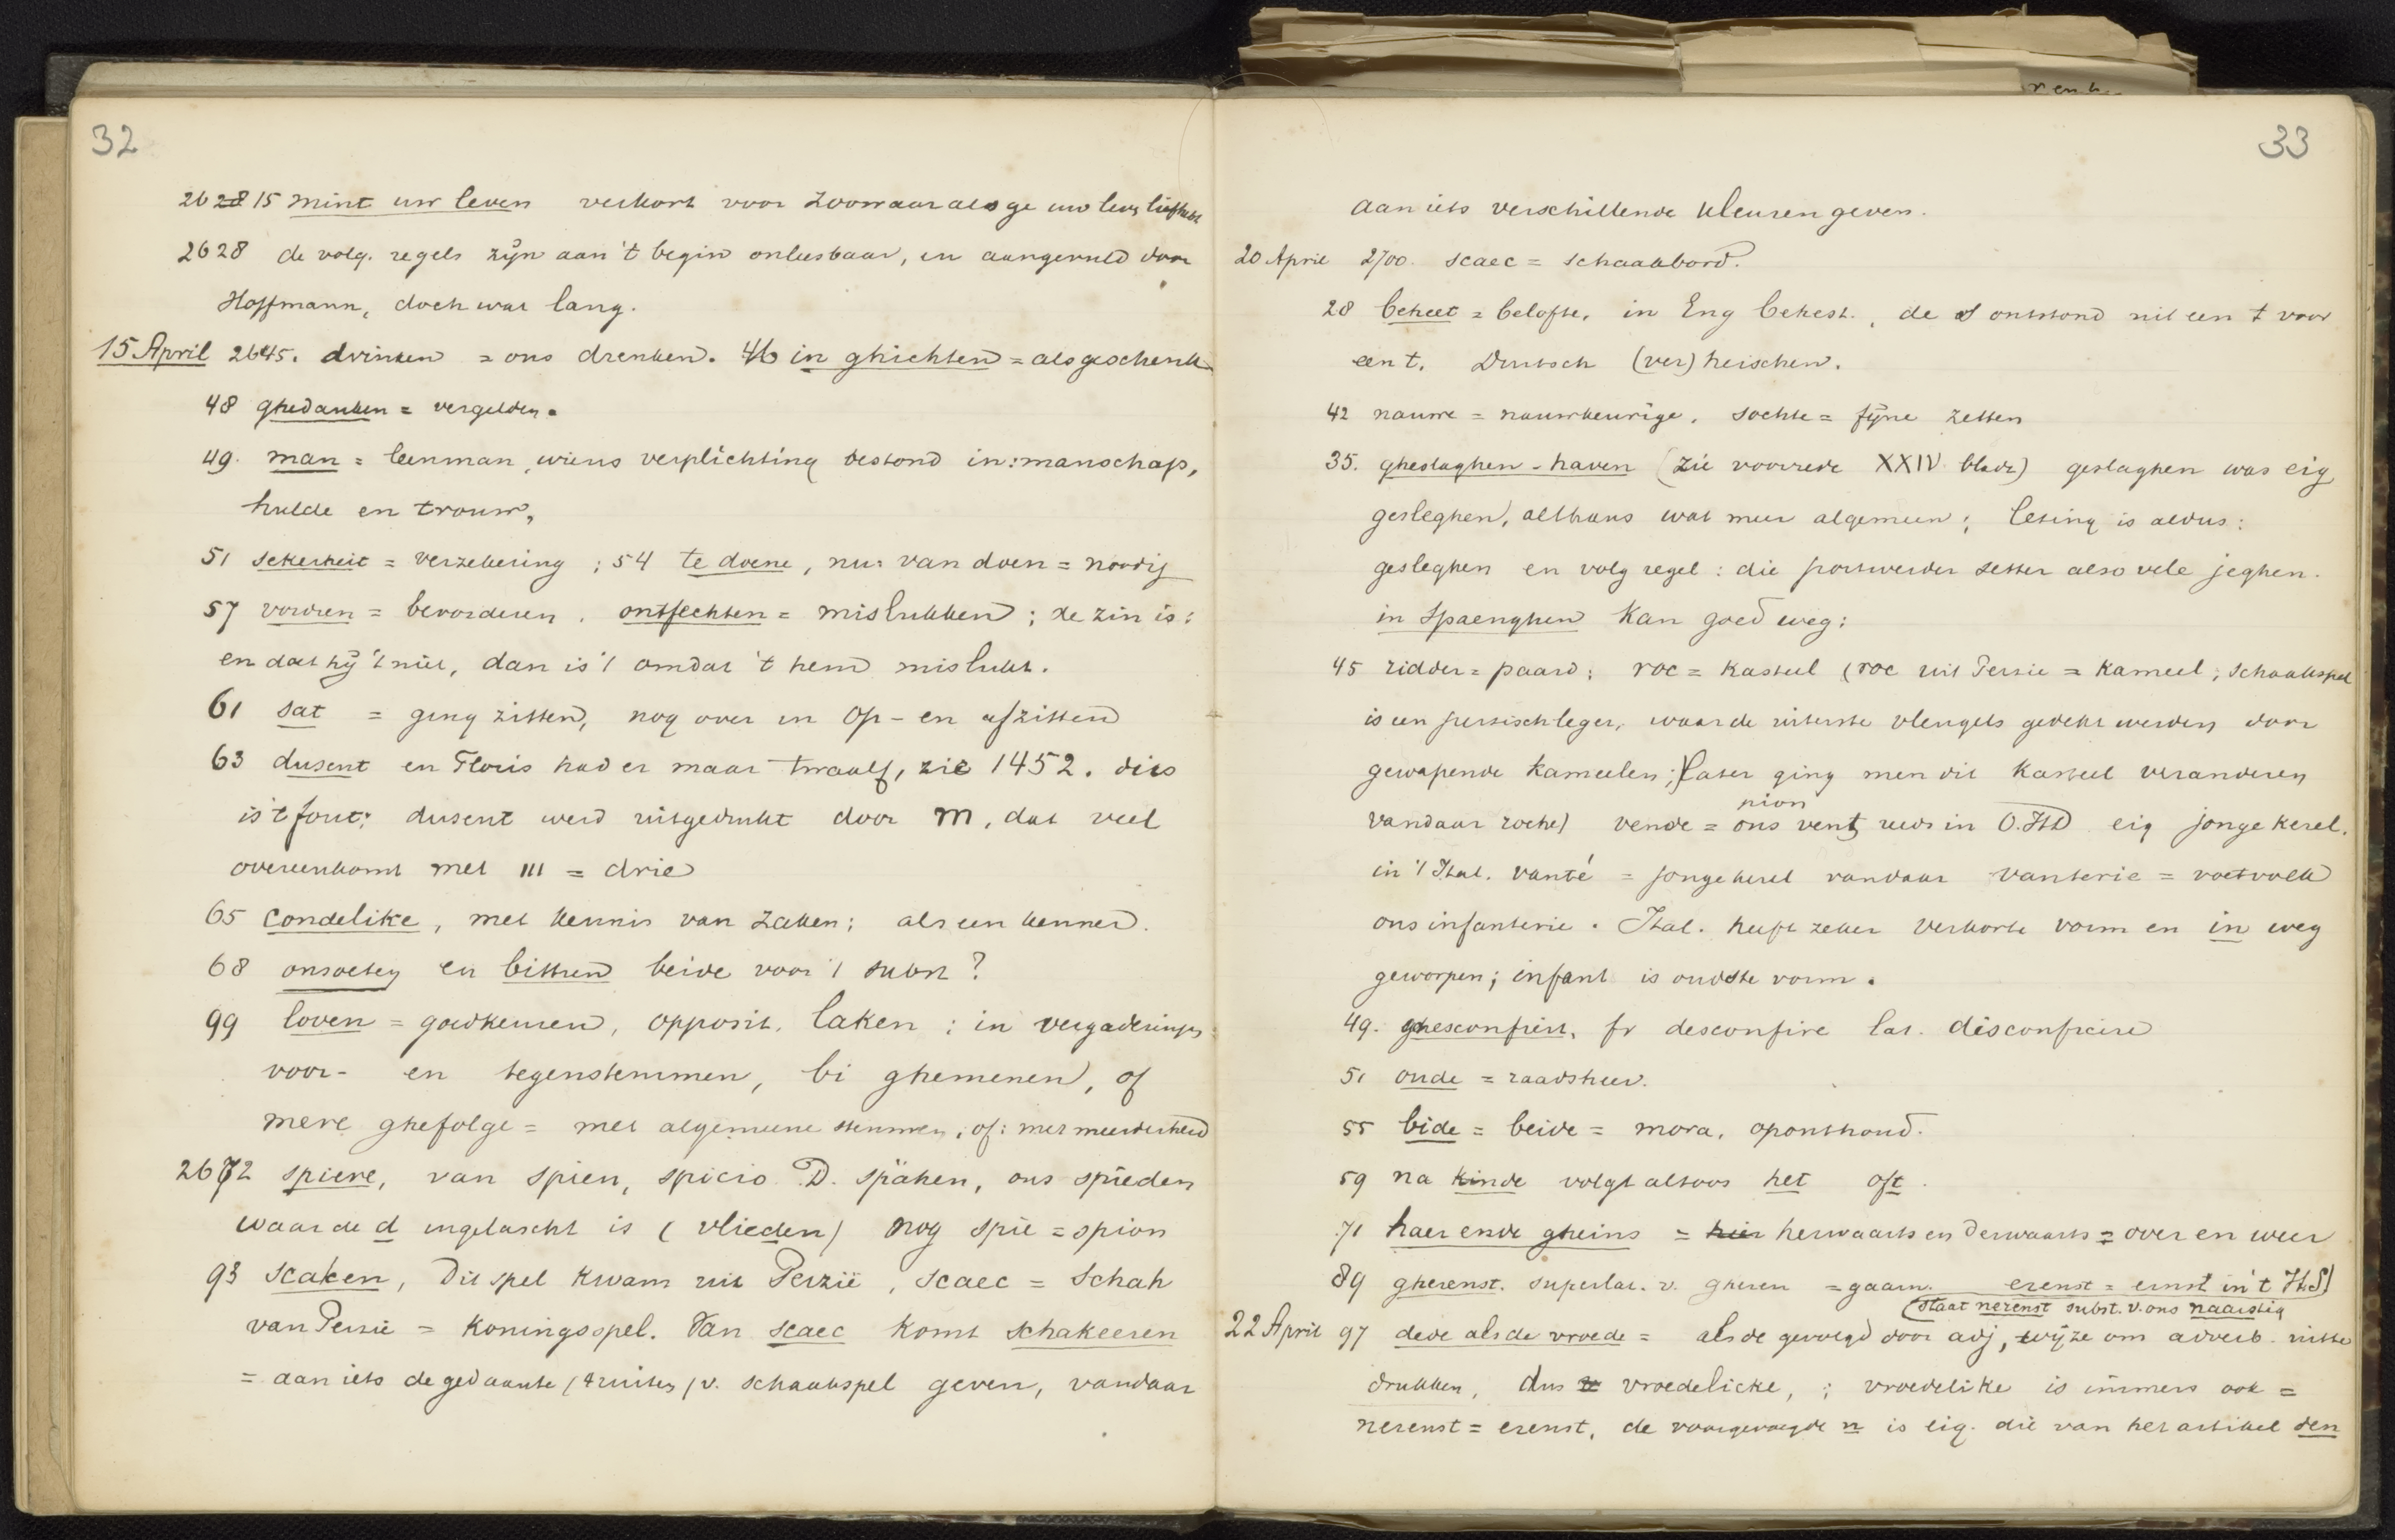 32
26 28 15 mint uw leven verkort voor zoowaar als ge uw leven liefhebt
2628 de volg. regels zijn aan 't begin onleesbaar, en aangevuld door
Hoffmann, doch wat lang.
15 April 2645. drinken = ons drenken. 46 in ghichten = als geschenk
48 ghedanken = vergelden.
49. man = leenman, wiens verplichting bestond in: manschap,
hulde en trouw,
51 sekerheit = verzekering ; 54 te doene, nu: van doen = noodig
57 vordren = bevorderen. ontfechten = mislukken ; de zin is:
en doet hij 't niet, dan is 't omdat 't hem mislukt.
61 sat = ging zitten, nog over in op- en afzitten
63 dusent en Floris had er maar twaalf, zie 1452. dies
is 't fout; dusent werd uitgedrukt door m, dat veel
overeenkomt met III = drie
65 condelike, met kennis van zaken; als een kenner.
68 onsoeten en bittren beide voor 't subst?
99 loven = goedkeuren, opposit. laken ; in vergaderingen
voor- en tegenstemmen, bi ghemenen, of
mere ghefolge = met algemeene stemmen, of: met meerderheid
2672 spiere, van spien, spicio D. spähen, ons spieden
waar de d ingelascht is (vlieden) nog spie = spion
93 scaken, Dit spel kwam uit Perzië, scaec = Schah
van Perzie = Koningsspel. Van scaec komt schakeeren
= aan iets de gedaante (4 ruiten) v. schaakspel geven, vandaar
33
aan iets verschillende kleuren geven.
20 April 2700. scaec = schaakbord.
28 beheet = belofte, in Eng behest., de s ontstond uit een t voor
een t. Duitsch (ver)heischen.
42 nauwe = nauwkeurige. sochte = fijne zetten
35. gheslaghen-haven (zie voorrede XXIV bladz) geslaghen was eig
gesleghen, althans wat meer algemeen; lesing is aldus:
gesleghen en volg regel: die portwerder setter also vele jeghen.
in Spaenghen kan goed weg:
45 ridder = paard; roc = kasteel (roc uit Perzie = kameel; schaakspel
is een perzisch leger, waar de uiterste vleugels gedekt werden door
gewapende kameelen; later ging men dit kasteel veranderen
pion
vandaar roche) vende = ons vent, reeds in O.HD eig jonge kerel.
in 't Ital. vanté = jonge kerel vandaar vanterie = voetvolk
ons infanterie. Ital. heeft zeker verkorte vorm en in weg
geworpen; infant is oudste vorm.
49. ghesconfiert, fr desconfire lat. disconficere
51 oude = raadsheer.
55 bide = beide = mora, oponthoud.
59 na kinde volgt altoos het oft.
71 haer ende gheins = hier herwaarts en derwaarts = over en weer
89 gherenst. superlat. v. gheren = gaarn. erenst = ernst in 't HS)
(staat nerenst subst. v. ons naarstig
22 April 97 dede als de vroede = als de gevolgd door adj, wijze om adverb. uit te
drukken, dus vroedelicke, ; vroedelike is immers ook =
nerenst = erenst, de voorgevoegde n is eig. die van het artikel den